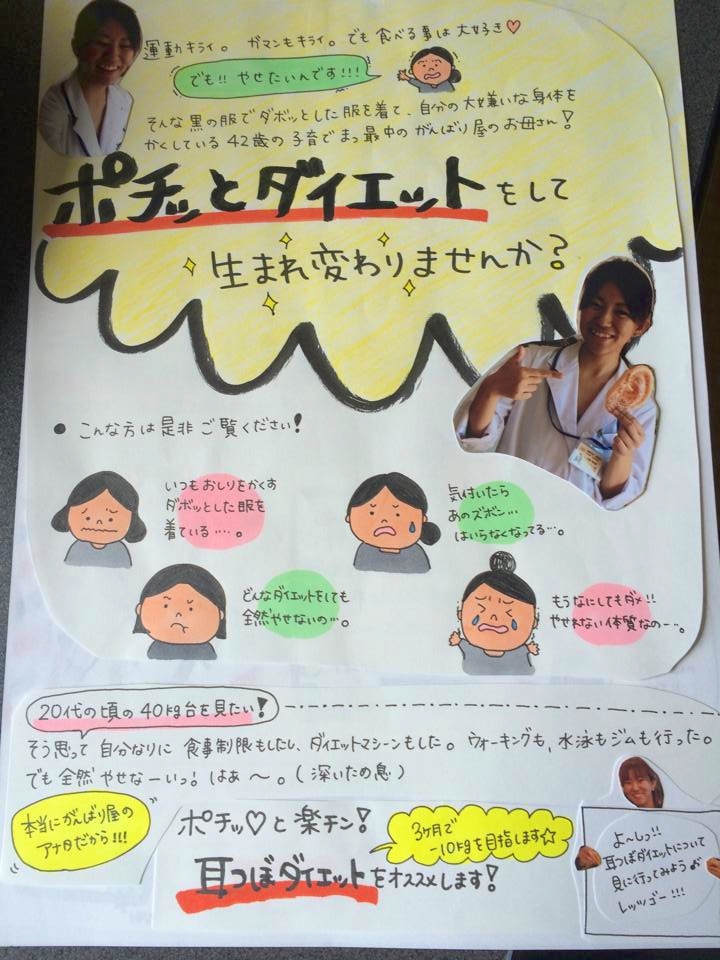 運動キライ。ガマンもキライ。でも食べる事は大好き♡
でも!! やせたいんです!!!
そんな黒の服でダボッとした服を着て、自分の大嫌いな身体を
かくしている42歳の子育てまっ最中のがんばり屋のお母さん!
ポチッとダイエットをして
生まれ変わりませんか?
● こんな方は是非ご覧ください!
いつもおしりをかくす
ダボッとした服を
着ている‥‥。
気付いたら
あのズボン…
はいらなくなってる…。
どんなダイエットをしても
全然やせないの…。
もうなにしてもダメ!!
やせれない体質なの…。
20代の頃の40kg台を見たい!
そう思って自分なりに食事制限もしたし、ダイエットマシーンもした。ウォーキングも、水泳もジムも行った。
でも全然やせなーいっ!はぁ〜。(深いため息)
本当にがんばり屋の
アナタだから!!!
ポチッ♡と楽チン!
3ヶ月で
-10kgを目指します☆
耳つぼダイエットをオススメします!
よ〜しっ!!
耳つぼダイエットについて
見に行ってみよう♪
レッツゴー!!!